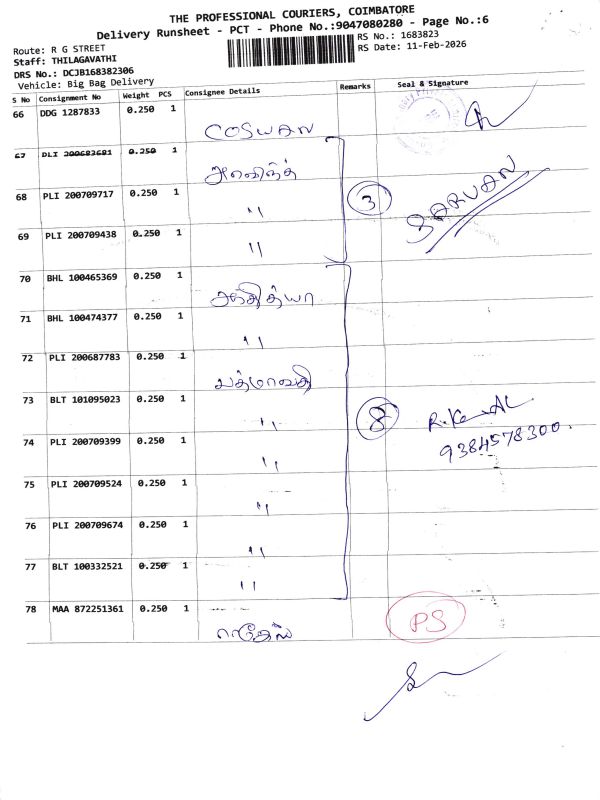 THE PROFESSIONAL COURIERS, COIMBATORE
Delivery Runsheet - PCT - Phone No.:9047080280 - Page No.:6
Route: R G STREET
RS No.: 1683823
Staff: THILAGAVATHI
RS Date: 11-Feb-2026
DRS No.: DCJB168382306
Vehicle: Big Bag Delivery
S No Consignment No Weight PCS Consignee Details Remarks Seal & Signature
66 DDG 1287833 0.250 1
COSWAN
67 DLI 200683681 0.250 1
68 PLI 200709717 0.250 1 " 3
69 PLI 200709438 0.250 1 "
70 BHL 100465369 0.250 1
ஆதித்யா
71 BHL 100474377 0.250 1 "
72 PLI 200687783 0.250 1
பத்மாவதி
73 BLT 101095023 0.250 1 " 8
74 PLI 200709399 0.250 1 "
9384578300.
75 PLI 200709524 0.250 1 "
76 PLI 200709674 0.250 1 "
77 BLT 100332521 0.250 1 "
78 MAA 872251361 0.250 1 PS